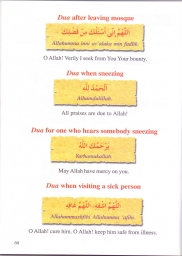 Dua after leaving mosque
اللَّهُمَّ إِنِّي أَسْئَلُكَ مِنْ فَضْلِكَ
Allahumma inni as'aluka min fadlik.
O Allah! Verily I seek from You Your bounty.
Dua when sneezing
اَلْحَمْدُ لِلَّهِ
Alhamdulillah.
All praises are due to Allah!
Dua for one who hears somebody sneezing
يَرْحَمُكَ اللَّهُ
Yarhamukallah.
May Allah have mercy on you.
Dua when visiting a sick person
اَللَّهُمَّ اشْفِهِ، اَللَّهُمَّ عَافِهِ
Allahummashfihi Allahumma 'afihi.
O Allah! cure him. O Allah! keep him safe from illness.